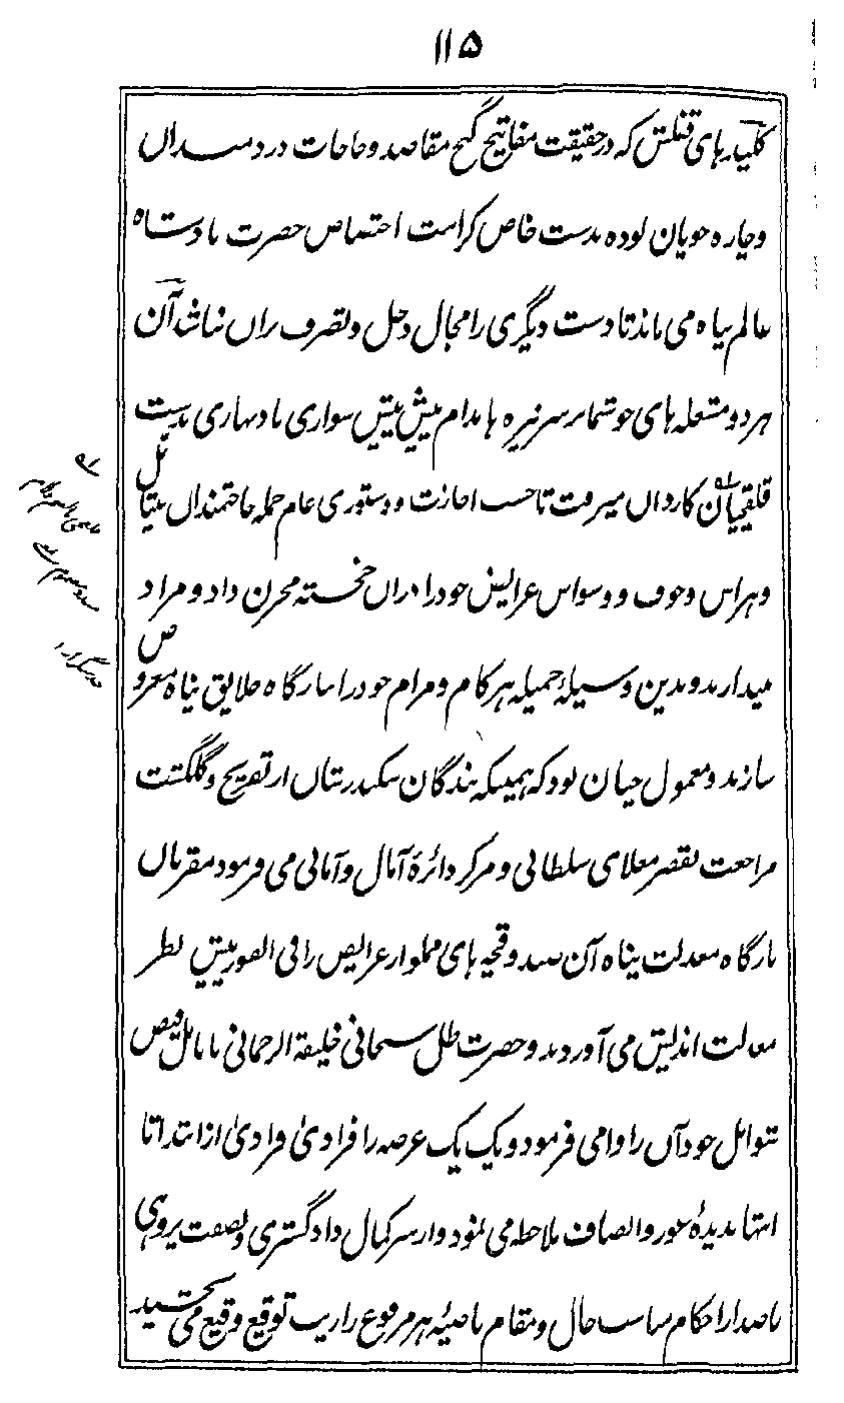 ۱۱۵
کلیدهای قفلش که در حقیقت مفاتیح گنج مقاصد و حاجات دردمندان
و چاره جویان بوده بدست خاص کرامت اختصاص حضرت بادشاه
عالم پناه می ماند تا دست دیگری را مجال دخل و تصرف بران نباشد آن
هر دو مشعله های خوشنما بر سر نیزه ها مدام پیش پیش سواری با دو بدست
قلقچیان کاردان میرفت تا حسب اجازت و دستوری عام جمله حاجتمندان بیتامل
و هراس و خوف و وسواس عرایض خود را دران خجسته مخزن داد و مراد
میدارند و بدین وسیلهٔ جمیله هر کام و مرام خود را ببارگاه خلایق پناه معروض
سازند و معمول چنان بود که همینکه بندگان سکندرشان از تفریح و گلگشت
مراجعت بقصر معلای سلطانی و مرکز دائرهٔ آمال و امانی می فرمود مقربان
بارگاه معدلت پناه آن صندوقچه های مملو از عرایض را فی الفور پیش نظر
معدلت اندیش می آوردند و حضرت ظل سبحانی خلیفة الرحمانی با نامل فیض
شوامل خود آن را وا می فرمود و یک یک عرضه را فرادیٰ فرادیٰ از ابتدا تا
انتها بدیدهٔ غور و انصاف ملاحظه می نمود و از سر کمال دادگستری و نصفت پروهی
باصدار احکام مناسب حال و مقام ناصیهٔ هر مرفوع را زیب توقیع وقیع می بخشید